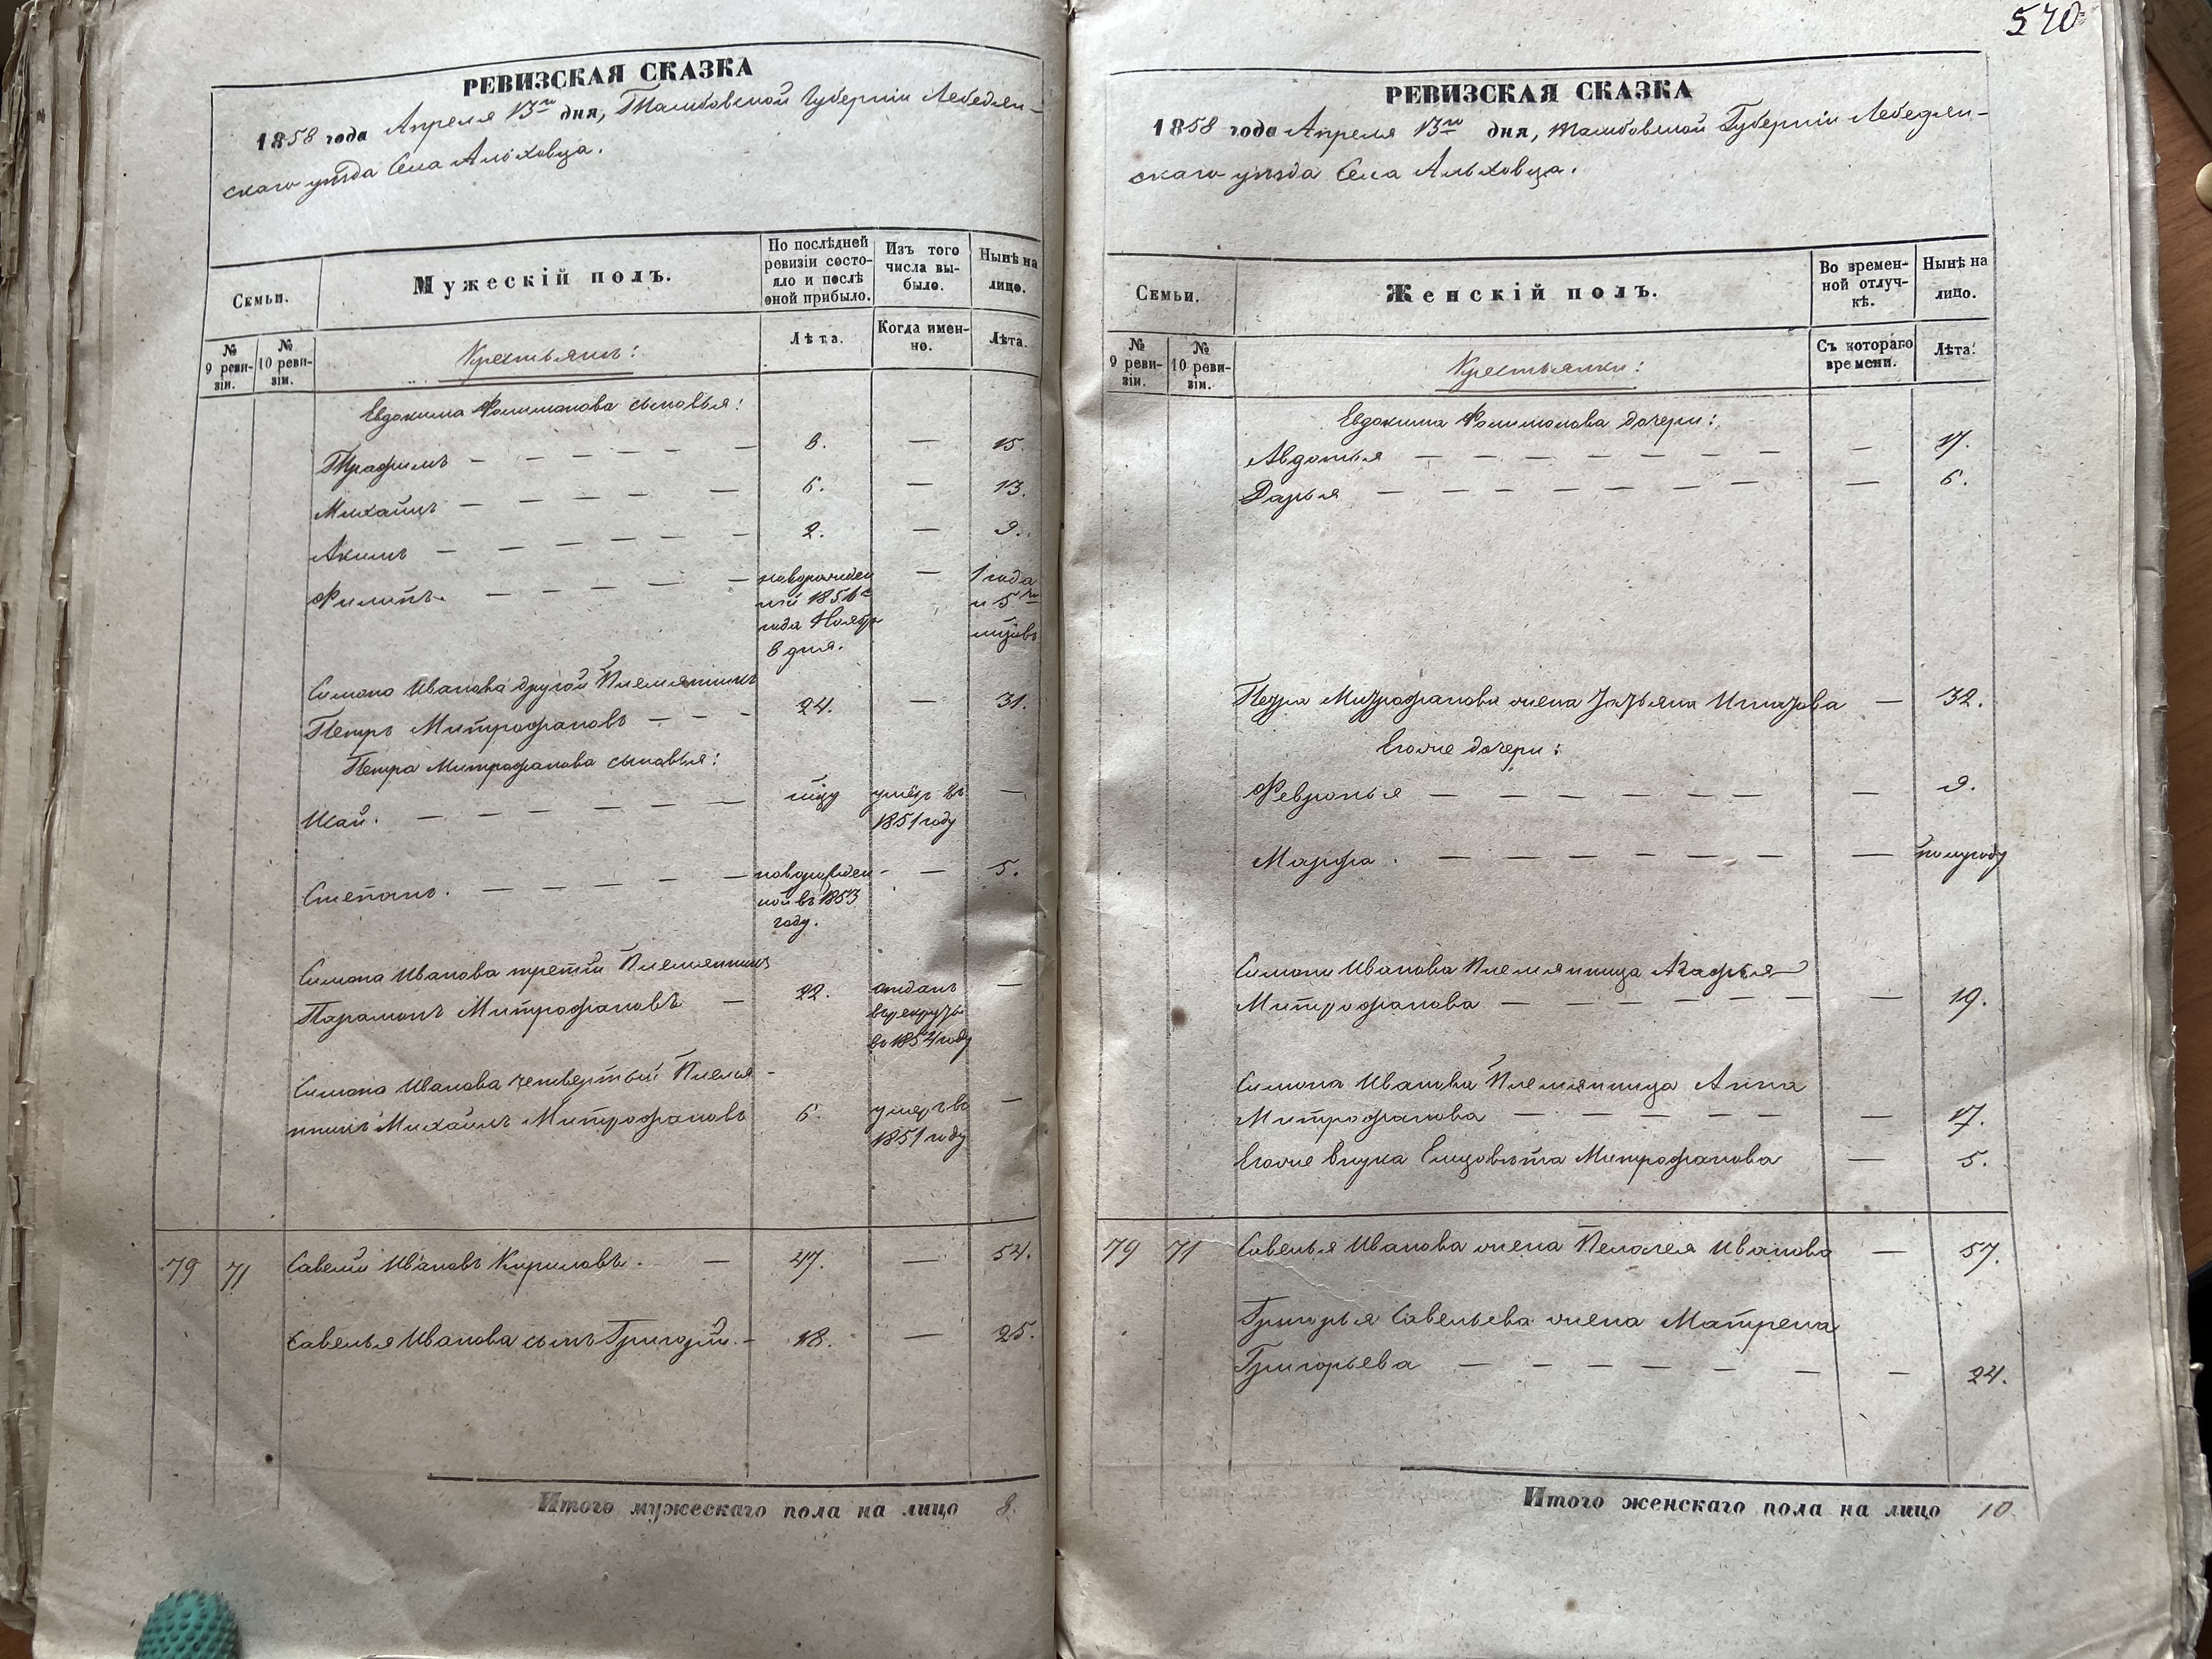 570
РЕВИЗСКАЯ СКАЗКА
1858 года Апреля 13го дня, Тамбовской Губернiи Лебедян-
скаго уѣзда Села Ольховца.
Семьи.
Мужескiй полъ.
По послѣдней ревизiи состо-яло и послѣ оной прибыло.
Изъ того числа вы-было.
Нынѣ на лицо.
№ 9 реви-зiи.
№ 10 реви-зiи.
Крестьянъ:
Лѣта.
Когда имен-но.
Лѣта.
Евдокима Филимонова сыновья:
Трафимъ — 8. — 15.
Михайлъ — 6. — 13.
Акимъ — 2. — 9.
Филипъ. — новорожден — 1 года
ный 1856го и 5ти
года Ноябр мцовъ
8 дня.
Симона Иванова другой Племянникъ
Петръ Митрофановъ — 24. — 31.
Петра Митрофанова сыновья:
Исай. — мцу умеръ въ —
1851 году
Степанъ. — новорожден- — 5.
ной въ 1853
году.
Симона Иванова третiй Племянникъ
Парамонъ Митрофановъ — 22. отданъ —
въ рекруты
въ 1854 году
Симона Иванова четвертый Племя-
нникъ Михайлъ Митрофановъ 6. умеръ въ —
1851 году
79 71 Савелiй Ивановъ Кириловъ. — 47. — 54.
Савелья Иванова сынъ Григорiй. — 18. — 25.
Итого мужескаго пола на лицо 8.
РЕВИЗСКАЯ СКАЗКА
1858 года Апреля 13го дня, Тамбовской Губернiи Лебедян-
скаго уѣзда Села Ольховца.
Семьи.
Женскiй полъ.
Во времен-ной отлуч-кѣ.
Нынѣ на лицо.
№ 9 реви-зiи.
№ 10 реви-зiи.
Крестьянки:
Съ котораго времени.
Лѣта.
Евдокима Филимонова дочери:
Авдотья — — 17.
Дарья — — 6.
Петра Митрофанова жена Татьяна Игнатова — 32.
Егоже дочери:
Февронья — — 9.
Марфа. — — полугоду
Симона Иванова Племянница Агафья
Митрофанова — — 19.
Симона Иванова Племянница Анна
Митрофанова — — 17.
Егоже внука Елизовѣта Митрофанова — 5.
79 71 Савелья Иванова жена Пелагея Иванова — 57.
Григорья Савельева жена Матрена
Григорьева — — 24.
Итого женскаго пола на лицо 10.